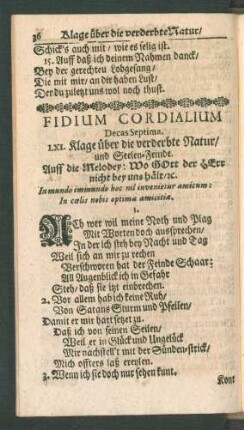 36 Klage über die verderbte Natur/
Schick's auch mit/ wie es selig ist.
15. Auff daß ich deinem Nahmen danck/
Bey der gerechten Lobgesang/
Die mit mir/ an dir haben Lust/
Der du zuletzt uns wol noch thust.
FIDIUM CORDIALIUM
Decas Septima.
LXI. Klage über die verderbte Natur/
und Seelen-Feinde.
Auff die Melodey: Wo GOtt der HErr
nicht bey uns hält/ec.
In mundo immundo hoc nil invenietur amicum:
In cœlis nobis optima amicitia.
1.
ACh wer wil meine Noth und Plag
Mit Worten doch aussprechen/
In der ich steh bey Nacht und Tag
Weil sich an mir zu rechen
Verschworen hat der Feinde Schaar:
All Augenblick ich in Gefahr
Steh/ daß sie itzt einbrechen.
2. Vor allem hab ich keine Ruh/
Von Satans Sturm und Pfeilen/
Damit er mir hart setzet zu.
Daß ich von seinen Seilen/
Weil er in Glück und Ungelück
Mir nachstell't mit der Sünden-strick/
Mich offters laß ereylen.
3. Wenn ich sie doch nur sehen kunt.
Kont